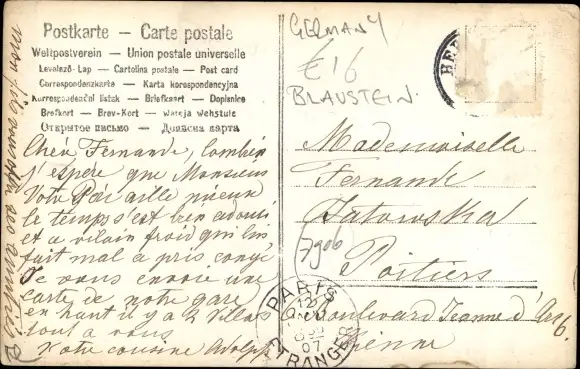 Postkarte — Carte postale
Weltpostverein — Union postale universelle
Levelező-Lap — Cartolina postale — Post card
Correspondenzkarte — Karta korespondencyjna
Korrespondenční lístek — Briefkaart — Dopisnice
Brefkort — Brev-Kort —
Открытое письмо — Дописна карта
Chère Fernande, Combien
J'espère que Monsieur
Votre Père aille mieux
le temps s'est bien adouci
et a vilain froid qui lui
fait mal a pris congé
Je vous envoie une
carte de notre gare
en haut il y a 2 villas
tout a vous
Votre cousine Adolph
GERMANY
€16
BLAUSTEIN.
HER
Mademoiselle
Fernande
Jatowska
7906
Poitiers
Boulevard Jeanne d'Arc 6.
Vienne
PARIS
12
07
ETRANGER